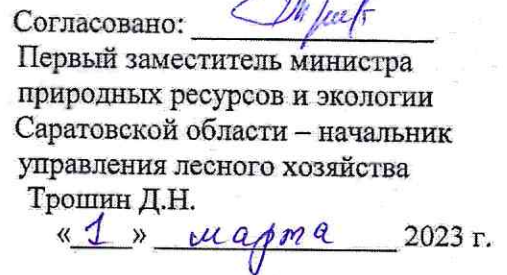 Согласовано:
Первый заместитель министра
природных ресурсов и экологии
Саратовской области – начальник
управления лесного хозяйства
Трошин Д.Н.
«1» марта 2023 г.